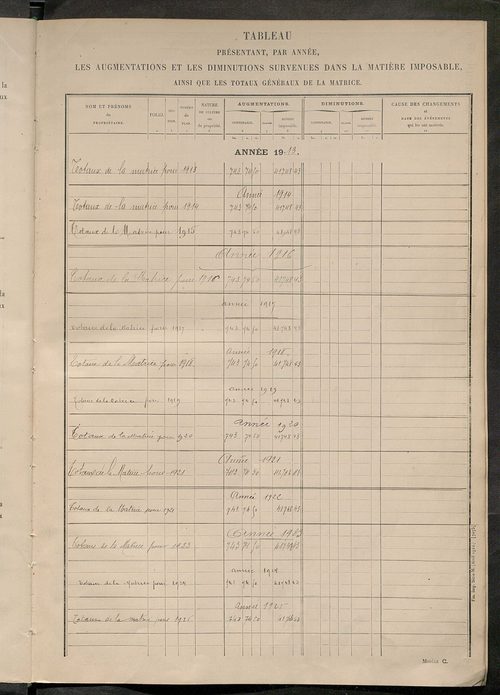 TABLEAU
PRÉSENTANT, PAR ANNÉE,
LES AUGMENTATIONS ET LES DIMINUTIONS SURVENUES DANS LA MATIÈRE IMPOSABLE,
AINSI QUE LES TOTAUX GÉNÉRAUX DE LA MATRICE.
NOM ET PRÉNOMS du PROPRIÉTAIRE. FOLIO. NATURE DE CULTURE ou de propriété. AUGMENTATIONS. DIMINUTIONS. CAUSE DES CHANGEMENTS et DATE DES ÉVÉNEMENTS qui les ont motivés.
CONTENANCE. REVENU imposable. CONTENANCE. REVENU imposable.
ANNÉE 1913.
Totaux de la matrice pour 1913 743 74 50 41748 43
Année 1914
Totaux de la matrice pour 1914 743 74 50 41748 43
Totaux de la Matrice pour 1915 743 74 50 41748 43
Année 1916
Totaux de la Matrice pour 1916 743 74 50 41748 43
année 1917
Totaux de la Matrice pour 1917 743 74 50 41748 43
Année 1918
Totaux de la Matrice pour 1918 743 74 50 41748 43
année 1919
Totaux de la Matrice pour 1919 743 74 50 41748 43
Année 1920
Totaux de la Matrice pour 1920 743 74 50 41748 43
Année 1921
Totaux de la Matrice pour 1921 743 74 50 41748 43
Année 1922
Totaux de la Matrice pour 1922 743 74 50 41748 43
Année 1923
Totaux de la Matrice pour 1923 743 74 50 41748 43
année 1924
Totaux de la Matrice pour 1924 743 74 50 41748 43
Année 1925
Totaux de la matrice pour 1925 743 74 50
MODÈLE C.